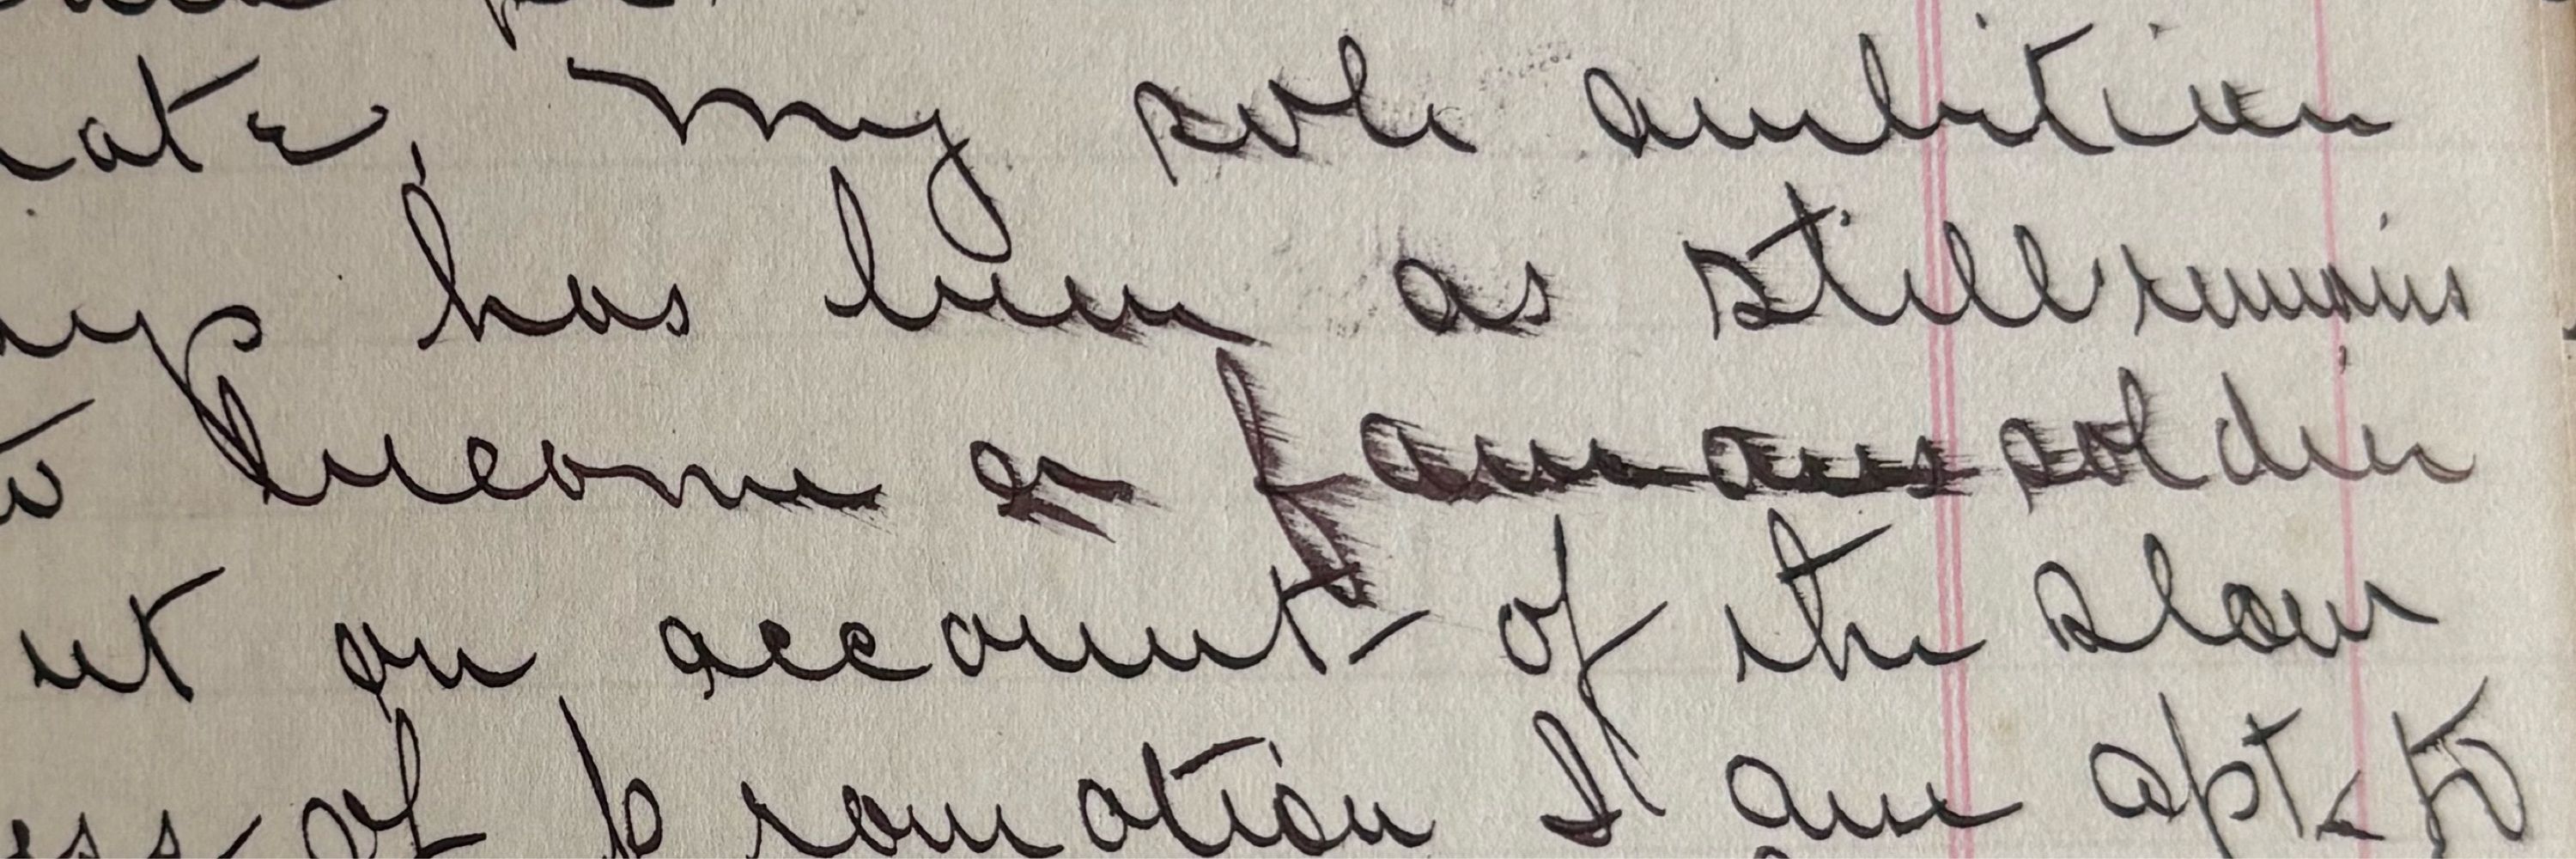 my sole ambition
has been as still remains
to become a famous soldier
on account of the slow
of promotion I am apt to